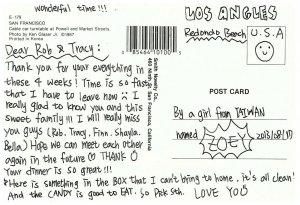 wonderful time!!!
E-179
SAN FRANCISCO
Cable car turntable at Powell and Market Streets.
Photo by Ken Glaser Jr. ©1987
Printed in Korea
Dear Rob & Tracy:
Thank you for your everything in
these 4 weeks! Time is so fast
that I have to leave now. I
really glad to know you and this
sweet family!!! I will really miss
you guys (Rob. Tracy. Finn. Shayla.
Bella) Hope we can meet each other
again in the future THANK
Your dinner is so great!!!
Here is something in the BOX that I can't bring to home. it's all clean!
And the CANDY is good to EAT. So Pck 5th. LOVE YOU
Smith Novelty Co.
460 Ninth St. San Francisco, California
LOS ANGLES
Redondo Beach
U.S.A
POST CARD
By a girl from TAIWAN
named
ZOEY
2013/08/17